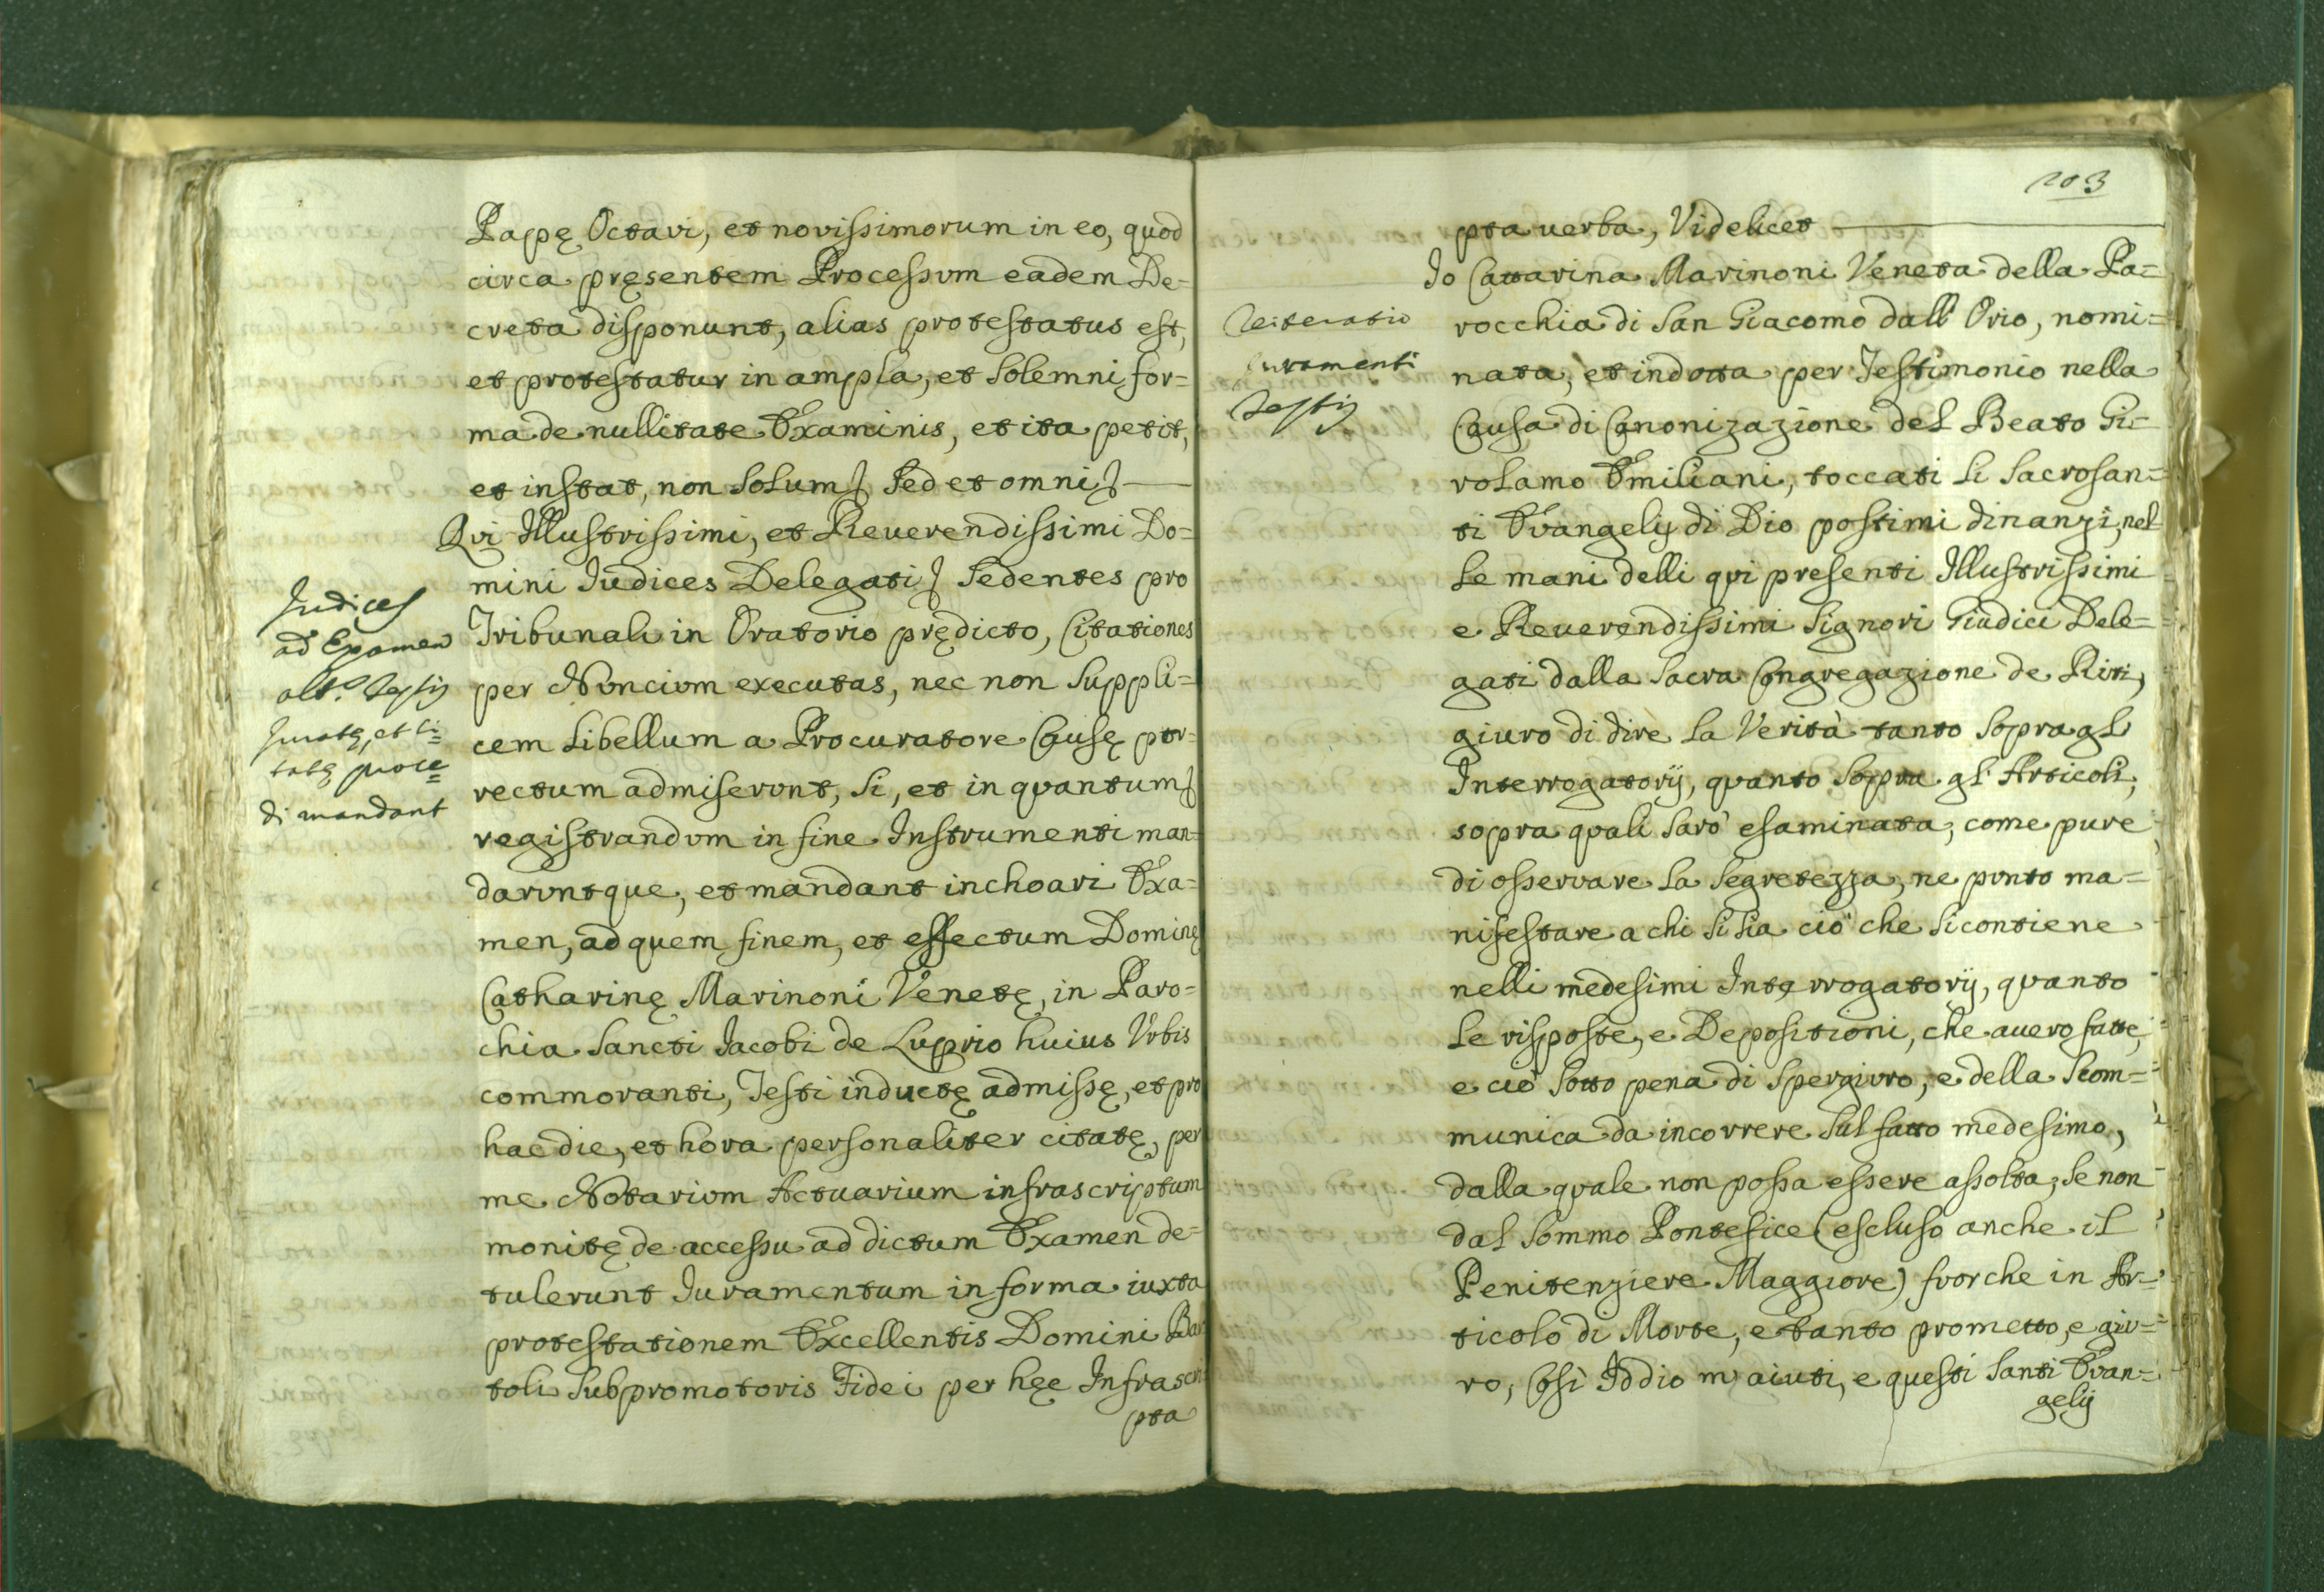 Papę Octavi, et novissimorum in eo, quod
circa pręsentem Processum eadem De=
creta disponunt, alias protestatus est,
et protestatur in ampla, et solemni for=
ma de nullitate Examinis, et ita petit,
et instat, non solum, sed et omni
Qui Illustrissimi, et Reverendissimi Do=
mini Iudices Delegati sedentes pro
Tribunali in Oratorio prędicto, Citationes
per Nuncium executas, nec non suppli=
cem libellum a Procuratore Causę por=
rectum admiserunt, si, et in quantum
registrandum in fine Instrumenti man=
daruntque, et mandant inchoari Exa=
men, ad quem finem, et effectum Dominę
Catharinę Marinoni Venetę, in Paro=
chia Sancti Iacobi de Luprio huius Urbis
commoranti, Testi inductę admissę, et pro
hac die, et hora personaliter citatę, per
me Notarium Actuarium infrascriptum
monitę de accessu ad dictum Examen de=
tulerunt Iuramentum in forma iuxta
protestationem Excellentis Domini Bar
toli Subpromotoris Fidei per hęc Infrascri
pta
Iudices
ad Examen
alt.s Testis
Iuratę, et Ci=
tatę proce=
di mandant
203
pta verba, Videlicet
Io Cattarina Marinoni Veneta della Pa=
rocchia di San Giacomo dall' Orio, nomi=
nata, et indotta per Testimonio nella
Causa di Canonizazione del Beato Gi=
rolamo Emiliani, toccati li Sacrosan=
ti Evangelij di Dio postimi dinanzi, nel
le mani delli qui presenti Illustrissimi
e Reverendissimi Signori Giudici Dele=
gati dalla Sacra Congregazione de Riti,
giuro di dire la Verità tanto sopra gl'
Interrogatorij, quanto sopra gl' Articoli,
sopra quali sarò esaminata, come pure
di osservare la segretezza, ne punto ma=
nifestare a chi si sia ciò che si contiene
nelli medesimi Interrogatorij, quanto
le risposte, e Depositioni, che averò fatte,
e ciò sotto pena di spergiuro, e della Scom=
munica da incorrere sul fatto medesimo,
dalla quale non possa essere assolta, se non
dal Sommo Pontefice (escluso anche il
Penitenziere Maggiore) fuorche in Ar=
ticolo di Morte, e tanto prometto, e giu=
ro, Così Iddio m'aiuti, e questi Santi Evan=
gelij
Reiteratio
Iuramenti
Testis